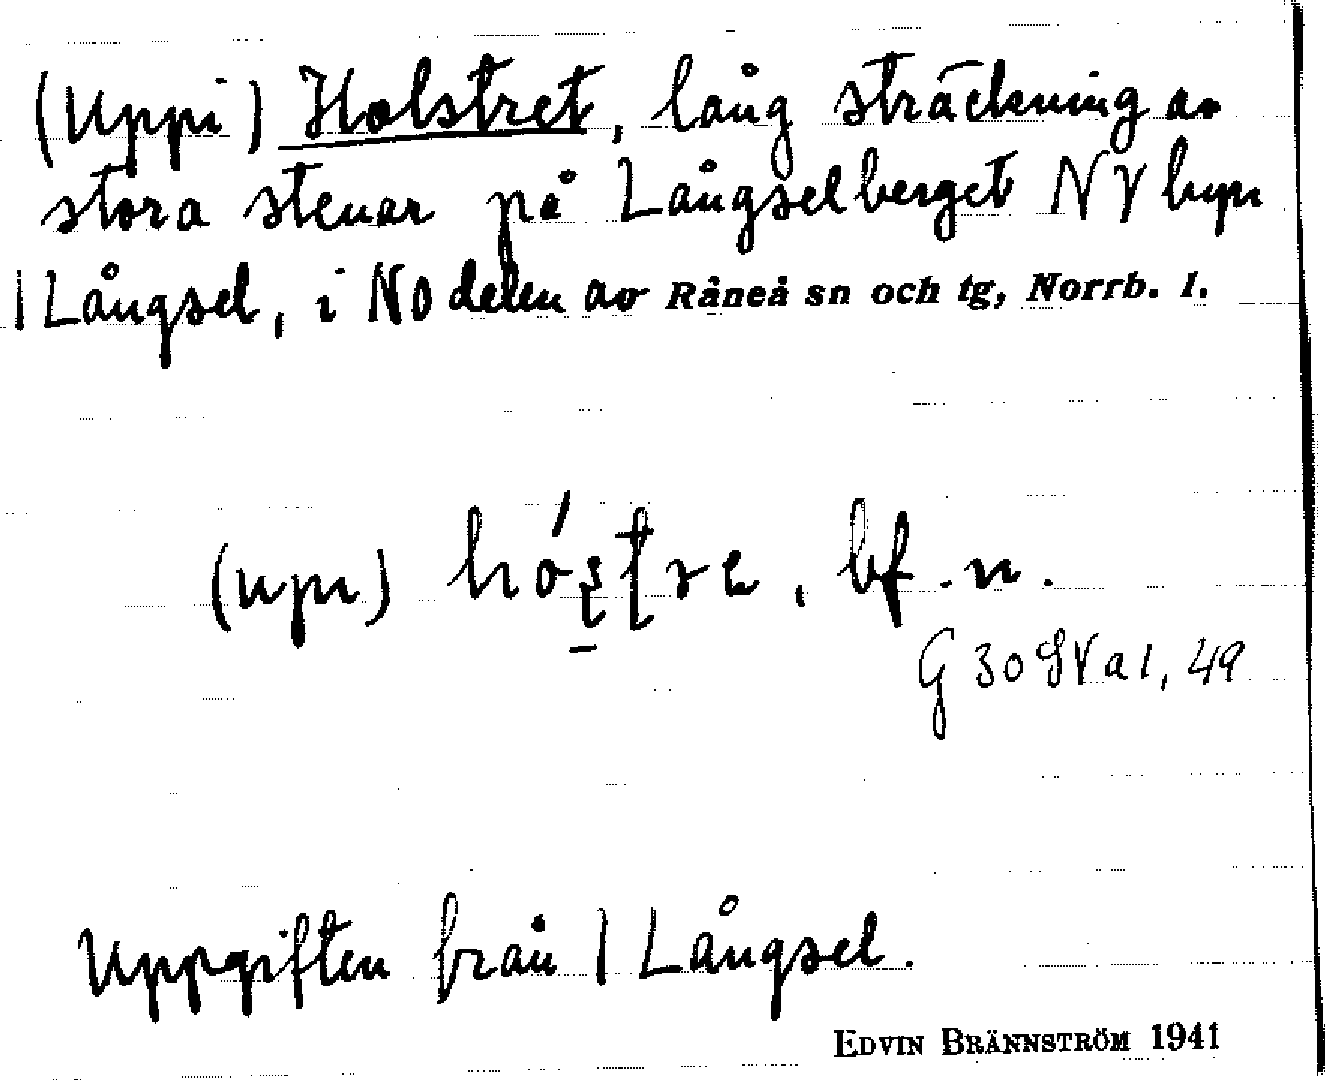 (Uppi) Holstret, lång sträckning av
stora stenar på Långselberget NV byn
| Långsel, i NO delen av Råneå sn och tg, Norrb. l.
(upı) hó̱ştre, bf. n.
G 30 SV a 1, 49
Uppgiften från | Långsel.
EDVIN BRÄNNSTRÖM 1941